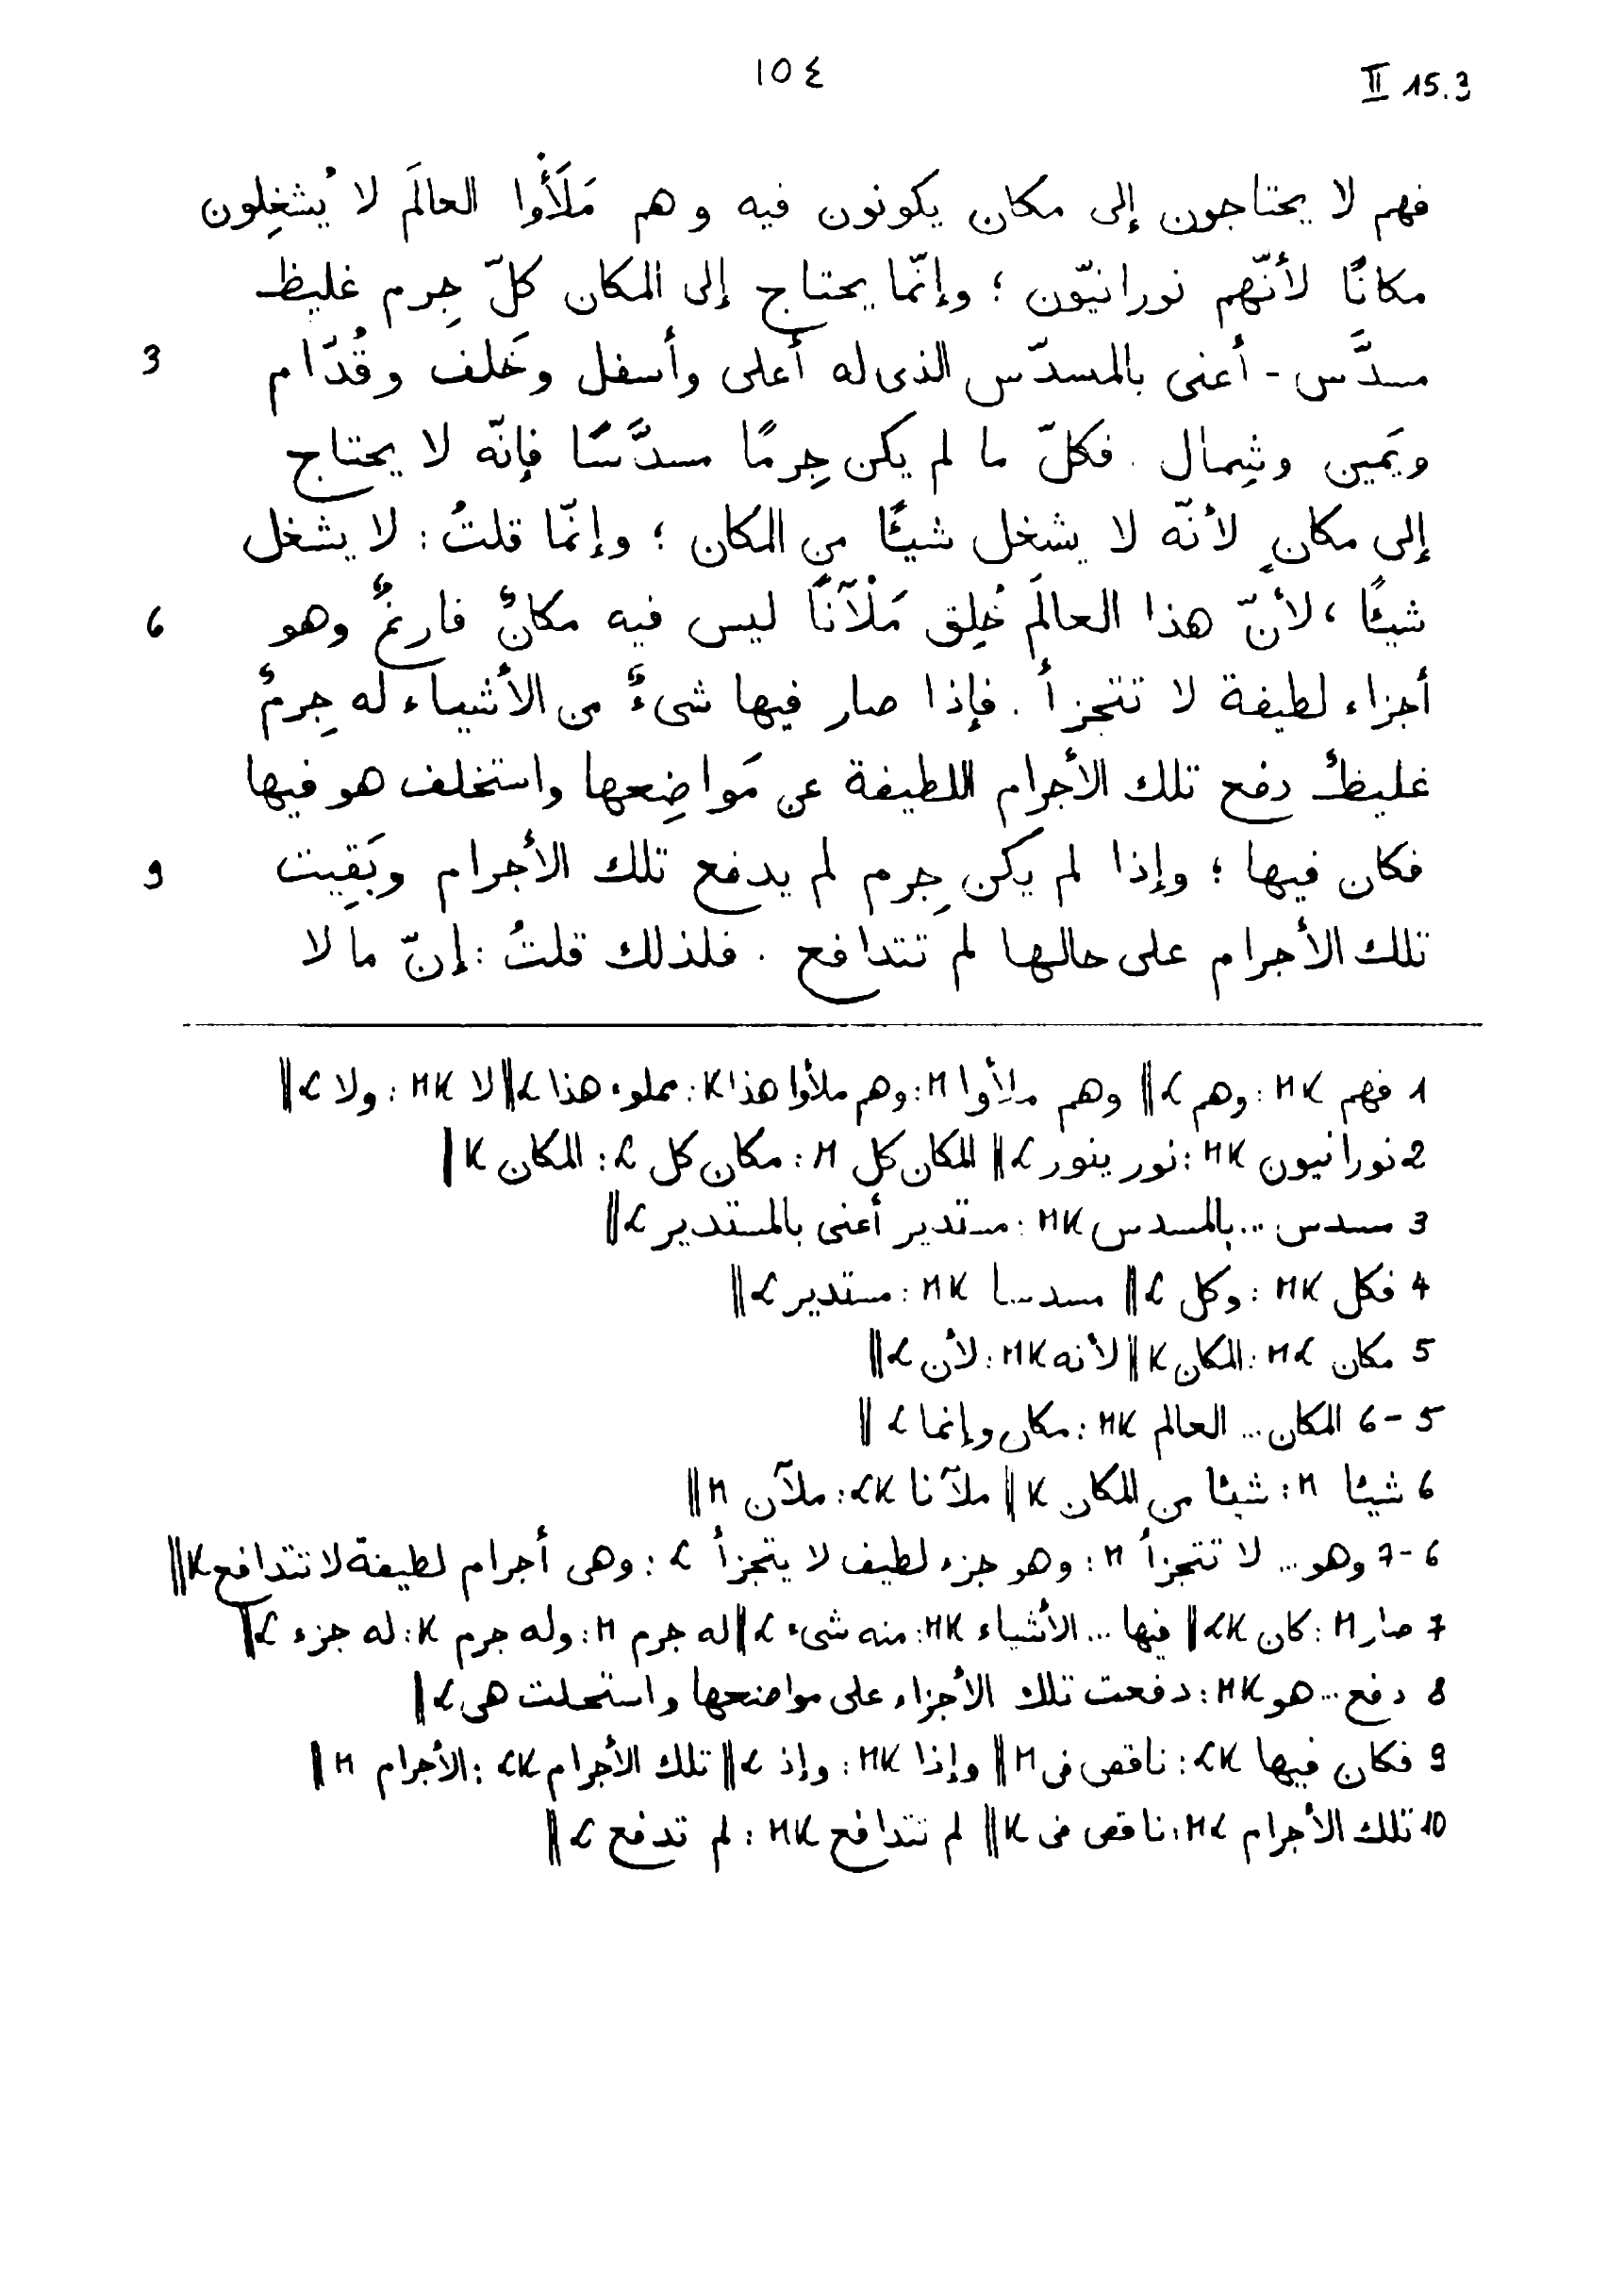 ١٥٤
II 15.3
فهم لا يحتاجون إلى مكان يكونون فيه وهم مَلَأُوا العالَم لا يُشغِلون
مكانًا لأنّهم نورانيّون ؛ وإنّما يحتاج إلى المكان كلّ جِرم غليظ
3 مسدَّس - أعنى بالمسدّس الذى له أعلى وأسفل وخَلف وقُدّام
ويَمين وشِمال . فكلّ ما لم يكن جِرمًا مسدَّسًا فإنّه لا يحتاج
إلى مكانٍ لأنّه لا يشغل شيئًا من المكان ؛ وإنّما قلتُ : لا يشغل
6 شيئًا ، لأنّ هذا العالَم خُلِق مَلْآنًا ليس فيه مكانٌ فارغٌ وهو
أجزاء لطيفة لا تتجزأ . فإذا صار فيها شىءٌ من الأشياء له جِرمٌ
غليظٌ دفع تلك الأجرام اللطيفة عن مَواضِعها واستخلف هو فيها
9 فكان فيها ؛ وإذا لم يكن جِرم لم يدفع تلك الأجرام وبَقِيت
تلك الأجرام على حالها لم تتدافع . فلذلك قلتُ : إنّ ما لا
1 فهم MK : وهم L || وهم ملأوا M : وهم ملأوا هذا K : مملوء هذا L || لا MK : ولا L ||
2 نورانيون MK : نور ينور L || المكان كل M : مكان كل L : المكان K |
3 مسدس ... بالمسدس MK : مستدير أعنى بالمستدير L ||
4 فكل MK : وكل L || مسدسا MK : مستدير L ||
5 مكان ML : المكان K || لأنه MK : لأن L ||
5-6 المكان ... العالم MK : مكان وإنما L ||
6 شيئا M : شيئا من المكان K || ملآنا LK : ملآن M ||
6-7 وهو ... لا تتجزأ M : وهو جزء لطيف لا يتجزأ L : وهى أجرام لطيفة لا تتدافع K ||
7 صار M : كان LK || فيها ... الأشياء MK : منه شىء L || له جرم M : وله جرم K : له جزء L ||
8 دفع ... هو MK : دفعت تلك الأجزاء على مواضعها واستحلت هى L ||
9 فكان فيها LK : ناقص فى M || وإذا MK : وإذ L || تلك الأجرام LK : الأجرام M ||
10 تلك الأجرام ML : ناقص فى K || لم تتدافع MK : لم تدفع L ||